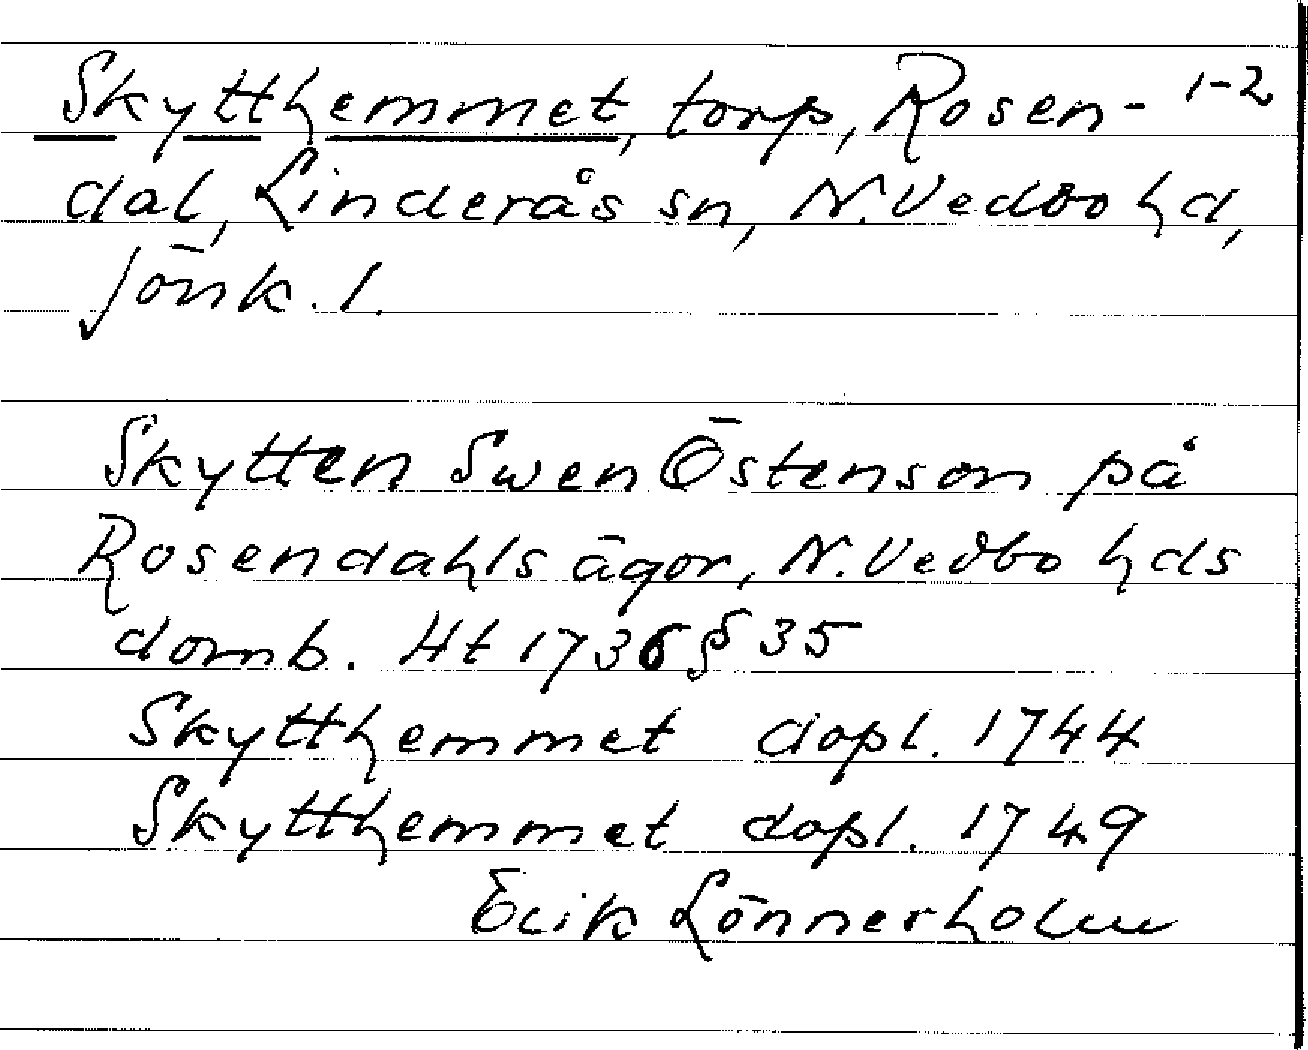 Skytthemmet, torp, Rosen- 1-2
dal, Linderås sn, N. Vedbo hd,
Jönk. l.
Skytten Swen Östenson på
Rosendahls ägor, N. Vedbo hds
domb. Ht 1736 § 35
Skytthemmet dopl. 1744
Skytthemmet dopl. 1749
Erik Lönnerholm